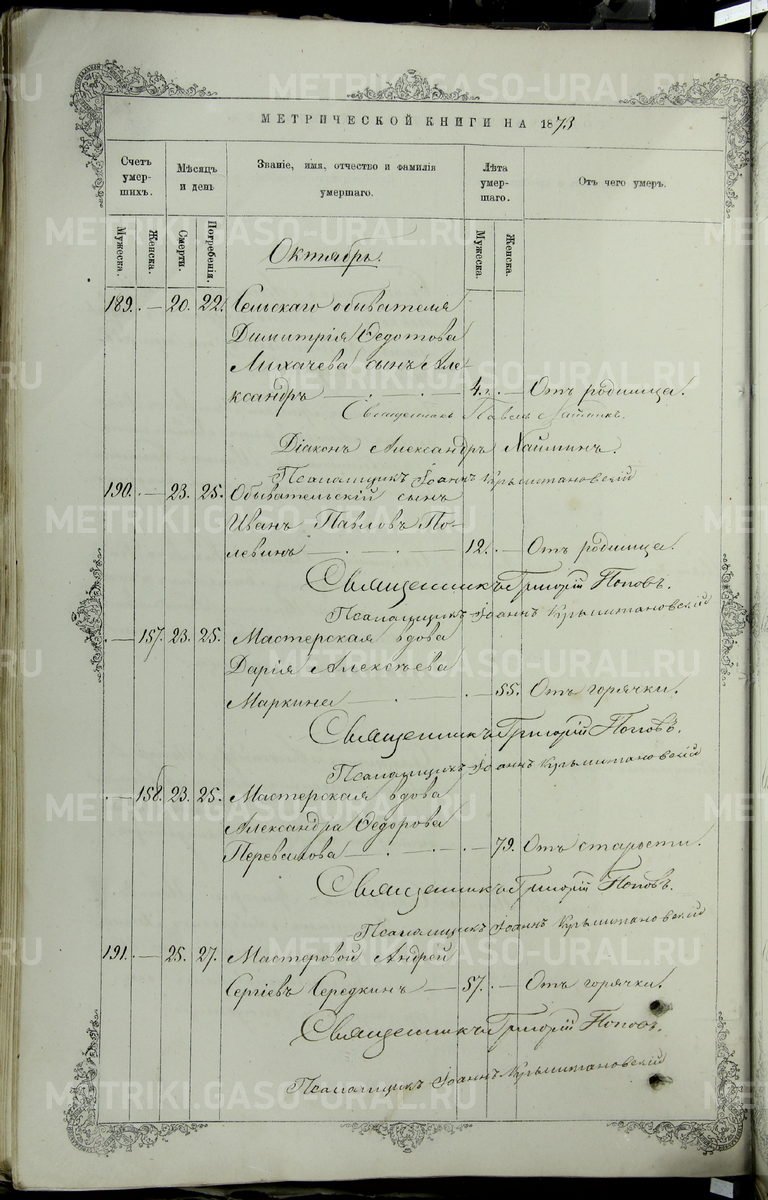 МЕТРИЧЕСКОЙ КНИГИ НА 1873
Счетъ умер-шихъ.
Мѣсяцъ и день
Званіе, имя, отчество и фамилія умершаго.
Лѣта умер-шаго.
Отъ чего умеръ.
Мужеска.
Женска.
Смерти.
Погребенія.
Мужеска.
Женска.
Октябрь.
189. — 20. 22. Сельскаго обывателя
Димитрія Ѳедотова
Лихачева сынъ Але-
ксандръ — 4. — Отъ родимца.
Священникъ Павелъ
Діаконъ Александръ Наймшнъ.
Псаломщикъ Іоаннъ
190. — 23. 25. Обывательскій сынъ
Иванъ Павловъ По-
левинъ — 12. — Отъ родимца.
Священникъ Григорій Поповъ.
Псаломщикъ Іоаннъ
— 157. 23. 25. Мастерская вдова
Дарія Алексѣева
Маркина — 55. Отъ горячки.
Священникъ Григорій Поповъ.
Псаломщикъ Іоаннъ
— 158. 23. 25. Мастерская вдова
Александра Ѳедорова
Перевалова — 79. Отъ старости.
Священникъ Григорій Поповъ.
Псаломщикъ Іоаннъ
191. — 25. 27. Мастеровой Андрей
Сергіевъ Середкинъ — 57. — Отъ горячки.
Священникъ Григорій Поповъ.
Псаломщикъ Іоаннъ
METRIKI.GASO-URAL.RU